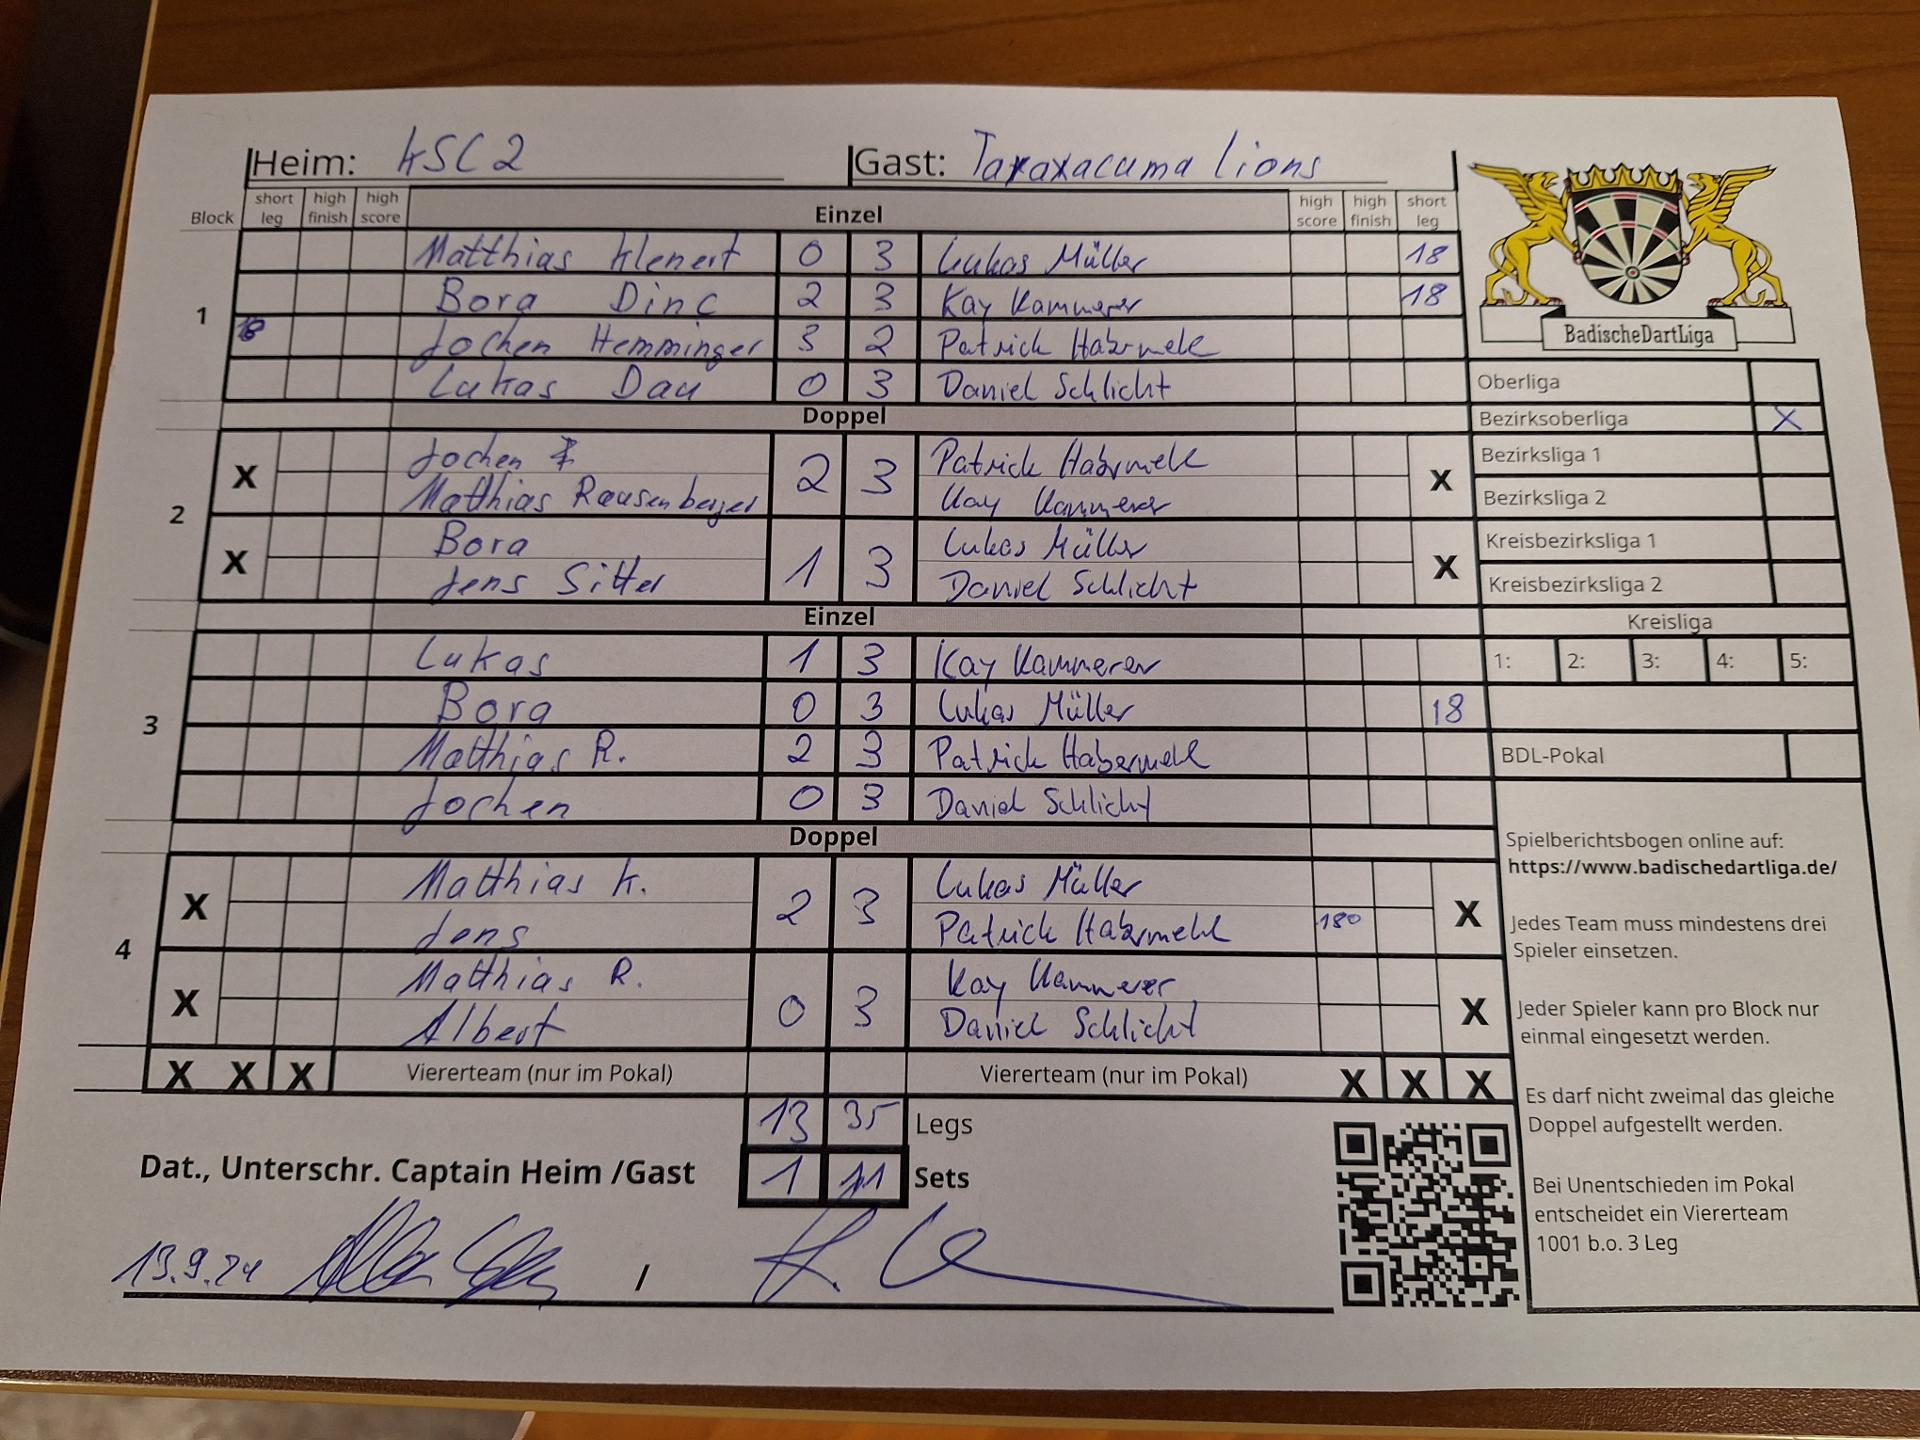 Heim: KSC2 Gast: Taraxacuma Lions
Block short leg high finish high score Einzel high score high finish short leg
1
Matthias Klenert 0 3 Lukas Müller 18
Bora Dinc 2 3 Kay Kammerer 18
18 Jochen Hemminger 3 2 Patrick Habermehl
Lukas Dau 0 3 Daniel Schlicht
Doppel
2
X Jochen 2 3 Patrick Habermehl X
Matthias Rausenberger Kay Kammerer
X Bora 1 3 Lukas Müller X
Jens Sitter Daniel Schlicht
Einzel
3
Lukas 1 3 Kay Kammerer
Bora 0 3 Lukas Müller 18
Matthias R. 2 3 Patrick Habermehl
Jochen 0 3 Daniel Schlicht
Doppel
4
X Matthias K. 2 3 Lukas Müller X
Jens Patrick Habermehl 180
X Matthias R. 0 3 Kay Kammerer X
Albert Daniel Schlicht
X X X Viererteam (nur im Pokal) Viererteam (nur im Pokal) X X X
13 35 Legs
Dat., Unterschr. Captain Heim /Gast 1 11 Sets
13.9.24 /
BadischeDartLiga
Oberliga
Bezirksoberliga X
Bezirksliga 1
Bezirksliga 2
Kreisbezirksliga 1
Kreisbezirksliga 2
Kreisliga
1: 2: 3: 4: 5:
BDL-Pokal
Spielberichtsbogen online auf:
https://www.badischedartliga.de/
Jedes Team muss mindestens drei
Spieler einsetzen.
Jeder Spieler kann pro Block nur
einmal eingesetzt werden.
Es darf nicht zweimal das gleiche
Doppel aufgestellt werden.
Bei Unentschieden im Pokal
entscheidet ein Viererteam
1001 b.o. 3 Leg